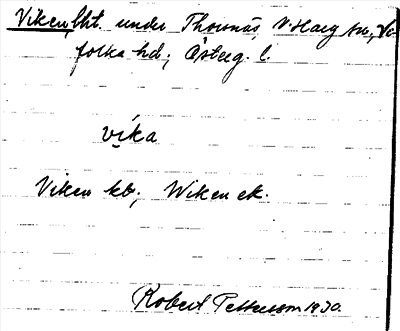 Viken, lht. under Thorsnäs, V. Haeg sn,
folka hd; Österg. l.
vika
Viken kb; Wiken ek.
Robert Pettersson 1930.